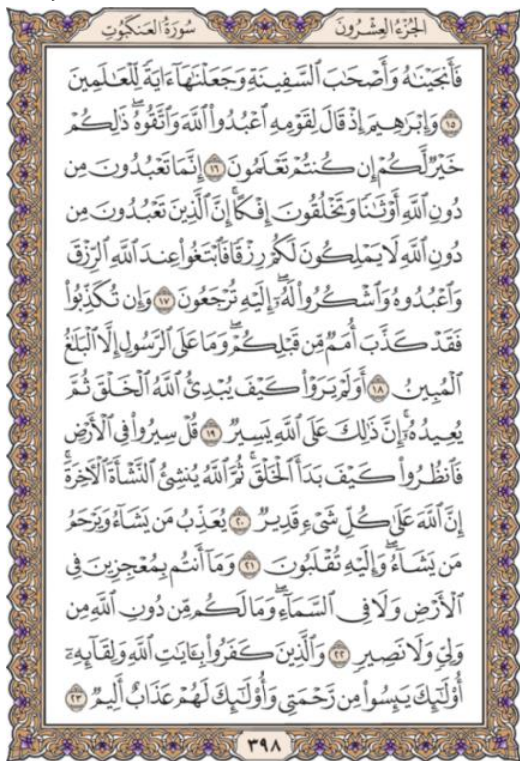 الجزء العشرون سورة العنكبوت
فَأَنجَيْنَٰهُ وَأَصْحَٰبَ ٱلسَّفِينَةِ وَجَعَلْنَٰهَآ ءَايَةً لِّلْعَٰلَمِينَ
١٥ وَإِبْرَٰهِيمَ إِذْ قَالَ لِقَوْمِهِ ٱعْبُدُوا۟ ٱللَّهَ وَٱتَّقُوهُ ۖ ذَٰلِكُمْ
خَيْرٌ لَّكُمْ إِن كُنتُمْ تَعْلَمُونَ ١٦ إِنَّمَا تَعْبُدُونَ مِن
دُونِ ٱللَّهِ أَوْثَٰنًا وَتَخْلُقُونَ إِفْكًا ۚ إِنَّ ٱلَّذِينَ تَعْبُدُونَ مِن
دُونِ ٱللَّهِ لَا يَمْلِكُونَ لَكُمْ رِزْقًا فَٱبْتَغُوا۟ عِندَ ٱللَّهِ ٱلرِّزْقَ
وَٱعْبُدُوهُ وَٱشْكُرُوا۟ لَهُۥٓ ۖ إِلَيْهِ تُرْجَعُونَ ١٧ وَإِن تُكَذِّبُوا۟
فَقَدْ كَذَّبَ أُمَمٌ مِّن قَبْلِكُمْ ۖ وَمَا عَلَى ٱلرَّسُولِ إِلَّا ٱلْبَلَٰغُ
ٱلْمُبِينُ ١٨ أَوَلَمْ يَرَوْا۟ كَيْفَ يُبْدِئُ ٱللَّهُ ٱلْخَلْقَ ثُمَّ
يُعِيدُهُۥٓ ۚ إِنَّ ذَٰلِكَ عَلَى ٱللَّهِ يَسِيرٌ ١٩ قُلْ سِيرُوا۟ فِى ٱلْأَرْضِ
فَٱنظُرُوا۟ كَيْفَ بَدَأَ ٱلْخَلْقَ ۚ ثُمَّ ٱللَّهُ يُنشِئُ ٱلنَّشْأَةَ ٱلْءَاخِرَةَ ۚ
إِنَّ ٱللَّهَ عَلَىٰ كُلِّ شَىْءٍ قَدِيرٌ ٢٠ يُعَذِّبُ مَن يَشَآءُ وَيَرْحَمُ
مَن يَشَآءُ ۖ وَإِلَيْهِ تُقْلَبُونَ ٢١ وَمَآ أَنتُم بِمُعْجِزِينَ فِى
ٱلْأَرْضِ وَلَا فِى ٱلسَّمَآءِ ۖ وَمَا لَكُم مِّن دُونِ ٱللَّهِ مِن
وَلِىٍّ وَلَا نَصِيرٍ ٢٢ وَٱلَّذِينَ كَفَرُوا۟ بِـَٔايَٰتِ ٱللَّهِ وَلِقَآئِهِۦٓ
أُو۟لَٰٓئِكَ يَئِسُوا۟ مِن رَّحْمَتِى وَأُو۟لَٰٓئِكَ لَهُمْ عَذَابٌ أَلِيمٌ ٢٣
٣٩٨